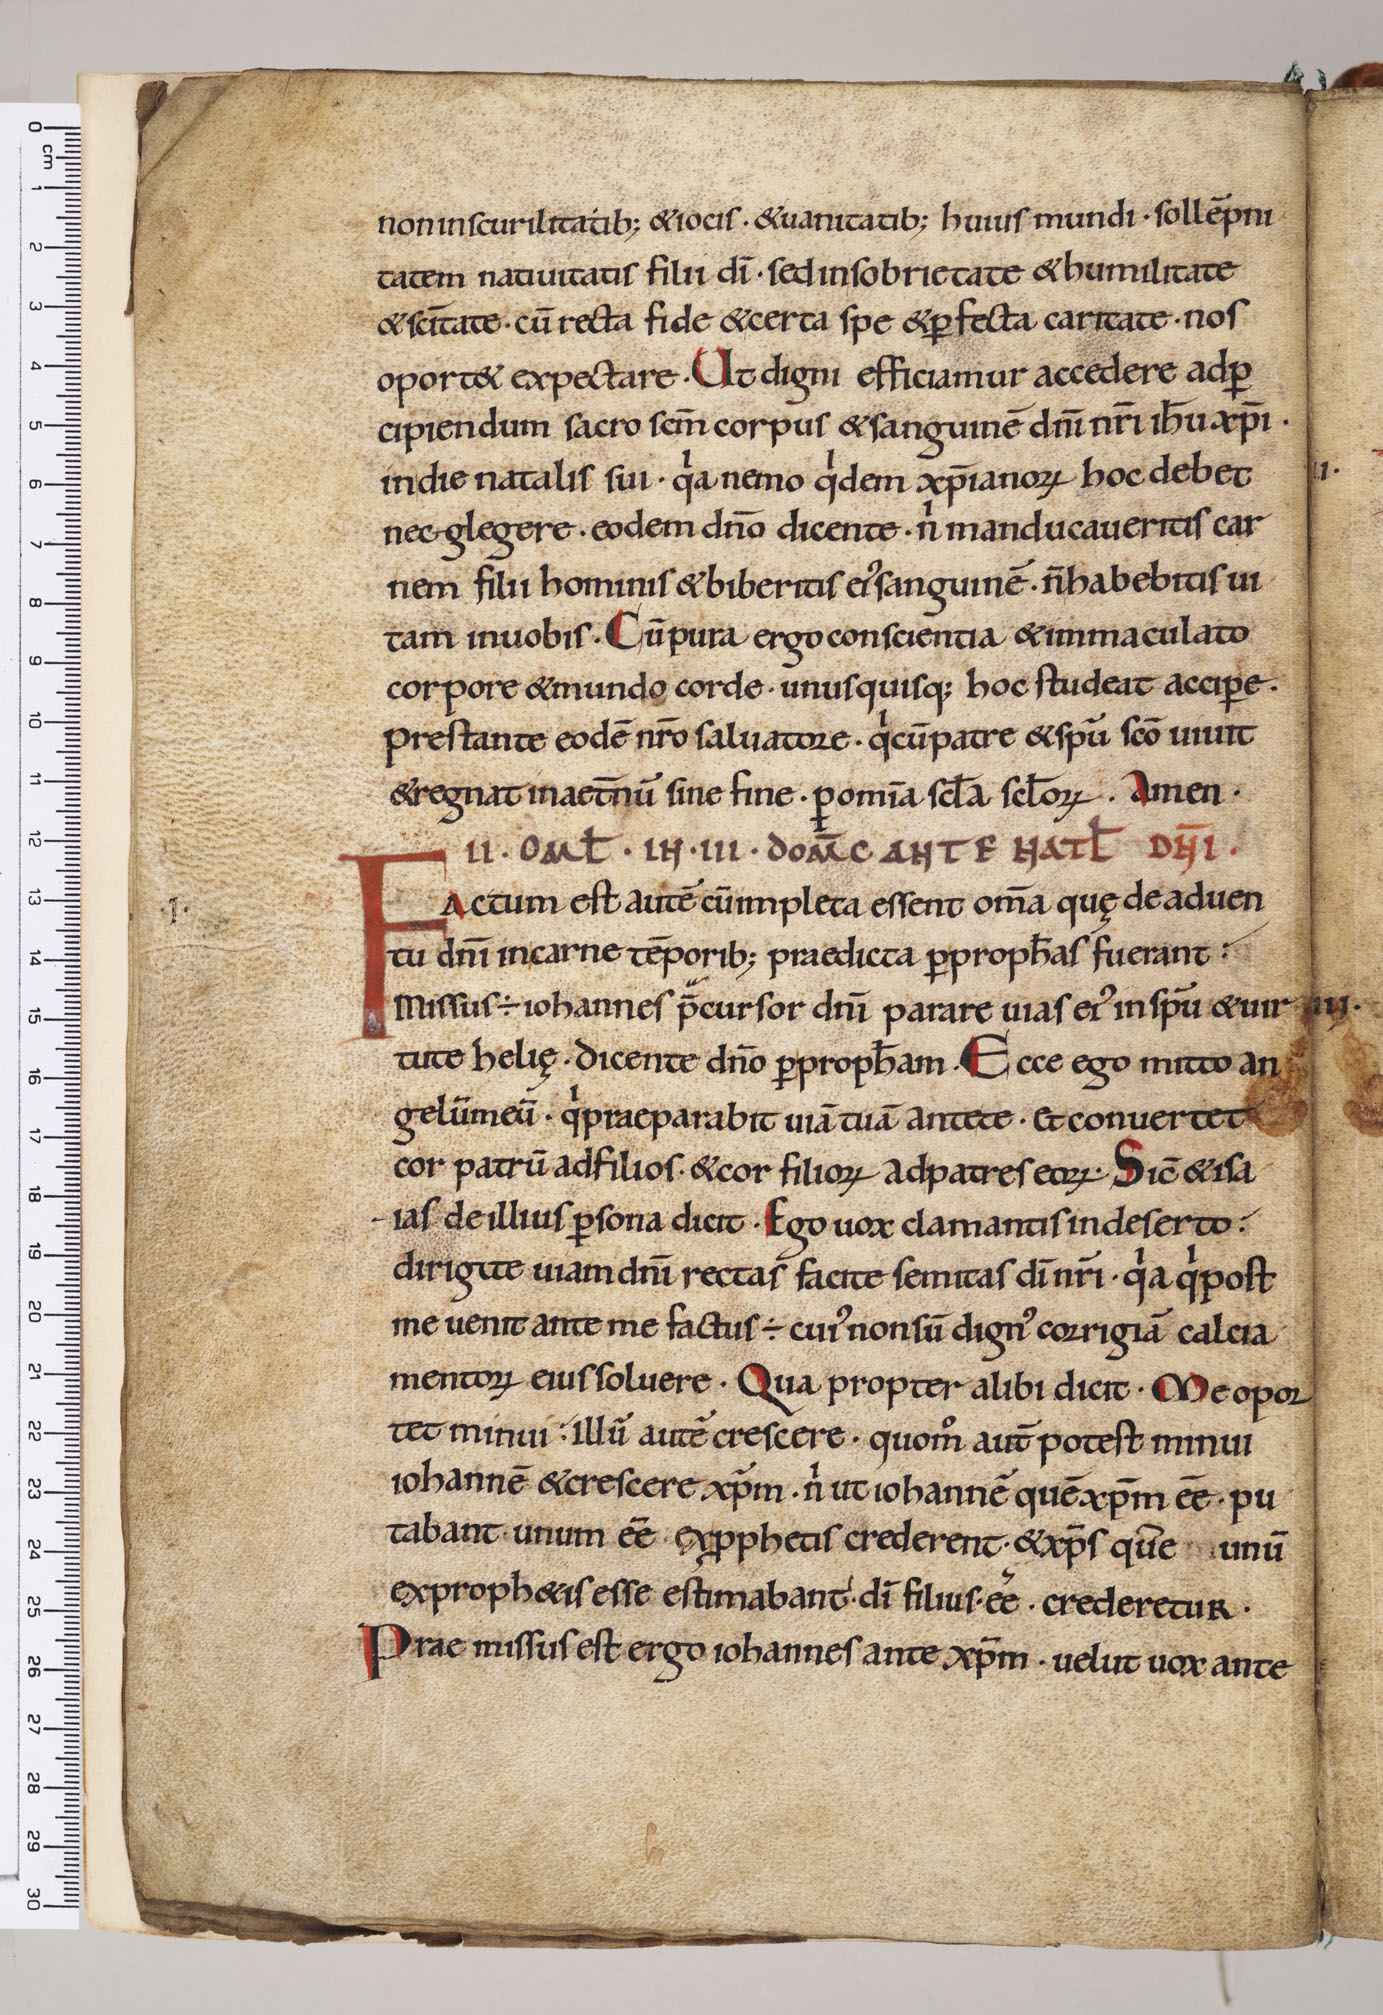 non in scurilitatib; & iocis · & uanitatib; huius mundi · sollēpni
tatem natiuitatis filii dī · sed in sobrietate & humilitate
& scītate · cū recta fide & certa spe & ꝑfecta caritate · nos
oport& expectare · Ut digni efficiamur accedere ad ꝑ
cipiendum sacro scm̄ corpus & sanguinē dn̄i nr̄i ih̄u xp̄i ·
in die natalis sui · qͥa nemo qͥdem xp̄ianoꝝ hoc debet
nec glegere · eodem dn̄o dicente · nͥ manducaueritis car
nem filii hominis & biberitis eiꝰ sanguinē · n̄ habebitis ui
tam in uobis · Cū pura ergo conscientia & inmaculato
corpore & mundo corde · unusquisq; hoc studeat acciꝑe ·
Prestante eodē nr̄o saluatore · qͥ cū patre & spū scō uiuit
& regnat in aet̄nū sine fine · ꝑ om̄ia scl̄a scl̄oꝝ · Amen ·
II · OML̄ · IN · III · DOM̄C ANTE NATL̄ DN̄I ·
Factum est autē cū impleta essent om̄a quę de aduen
·I·
tu dn̄i in carne tēporib; praedicta ꝑ proph̄as fuerant :
Missus ÷ iohannes p̄cursor dn̄i parare uias eiꝰ in spū & uir
tute helię · dicente dn̄o ꝑ proph̄am · Ecce ego mitto an
gelū meū · qͥ praeparabit uiā tuā ante te · et conuertet
cor patrū ad filios · & cor filioꝝ ad patres eoꝝ · Sic̄ & isa
ias de illius ꝑsona dicit · Ego uox clamantis in deserto :
dirigite uiam dn̄i rectas facite semitas dī nr̄i · qͥa qͥ post
me uenit ante me factus ÷ cuiꝰ non sū dignꝰ corrigiā calcia
mentoꝝ eius soluere · Qua propter alibi dicit · Me opor
tet minui : illū autē crescere · quom̊ aut̄ potest minui
iohannē & crescere xp̄m · nͥ ut iohannē quē xp̄m ēē · pu
tabant unum ēē ex ꝓphetis crederent · & xp̄s quē unū
ex proph&is esse estimabant · dī filius · ēē · crederetur ·
Prae missus est ergo iohannes ante xp̄m · uelut uox ante